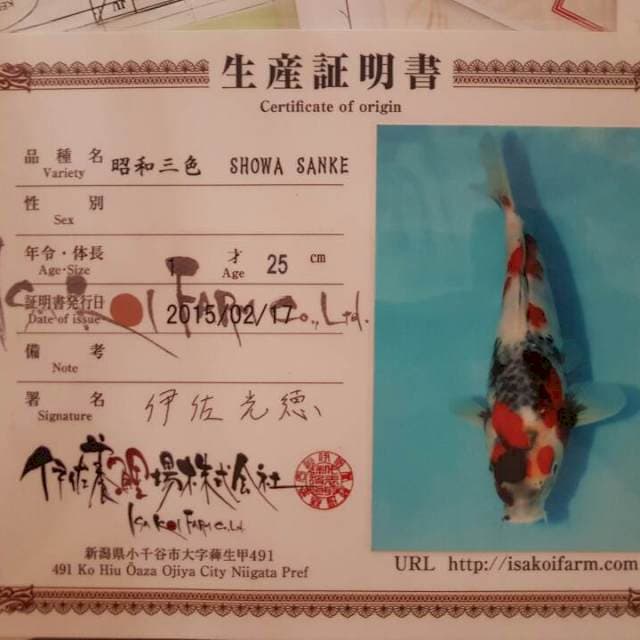 生産証明書
Certificate of origin
品種名 Variety 昭和三色 SHOWA SANKE
性別 Sex
年令・体長 Age・Size 1 才 Age 25 cm
証明書発行日 Date of issue 2015/02/17
ISA KOI FARM Co., Ltd.
備考 Note
署名 Signature 伊佐光徳
伊佐養鯉場株式会社
ISA KOI FARM Co., Ltd.
新潟県小千谷市大字薭生甲491
491 Ko Hiu Ōaza Ojiya City Niigata Pref
URL http://isakoifarm.com